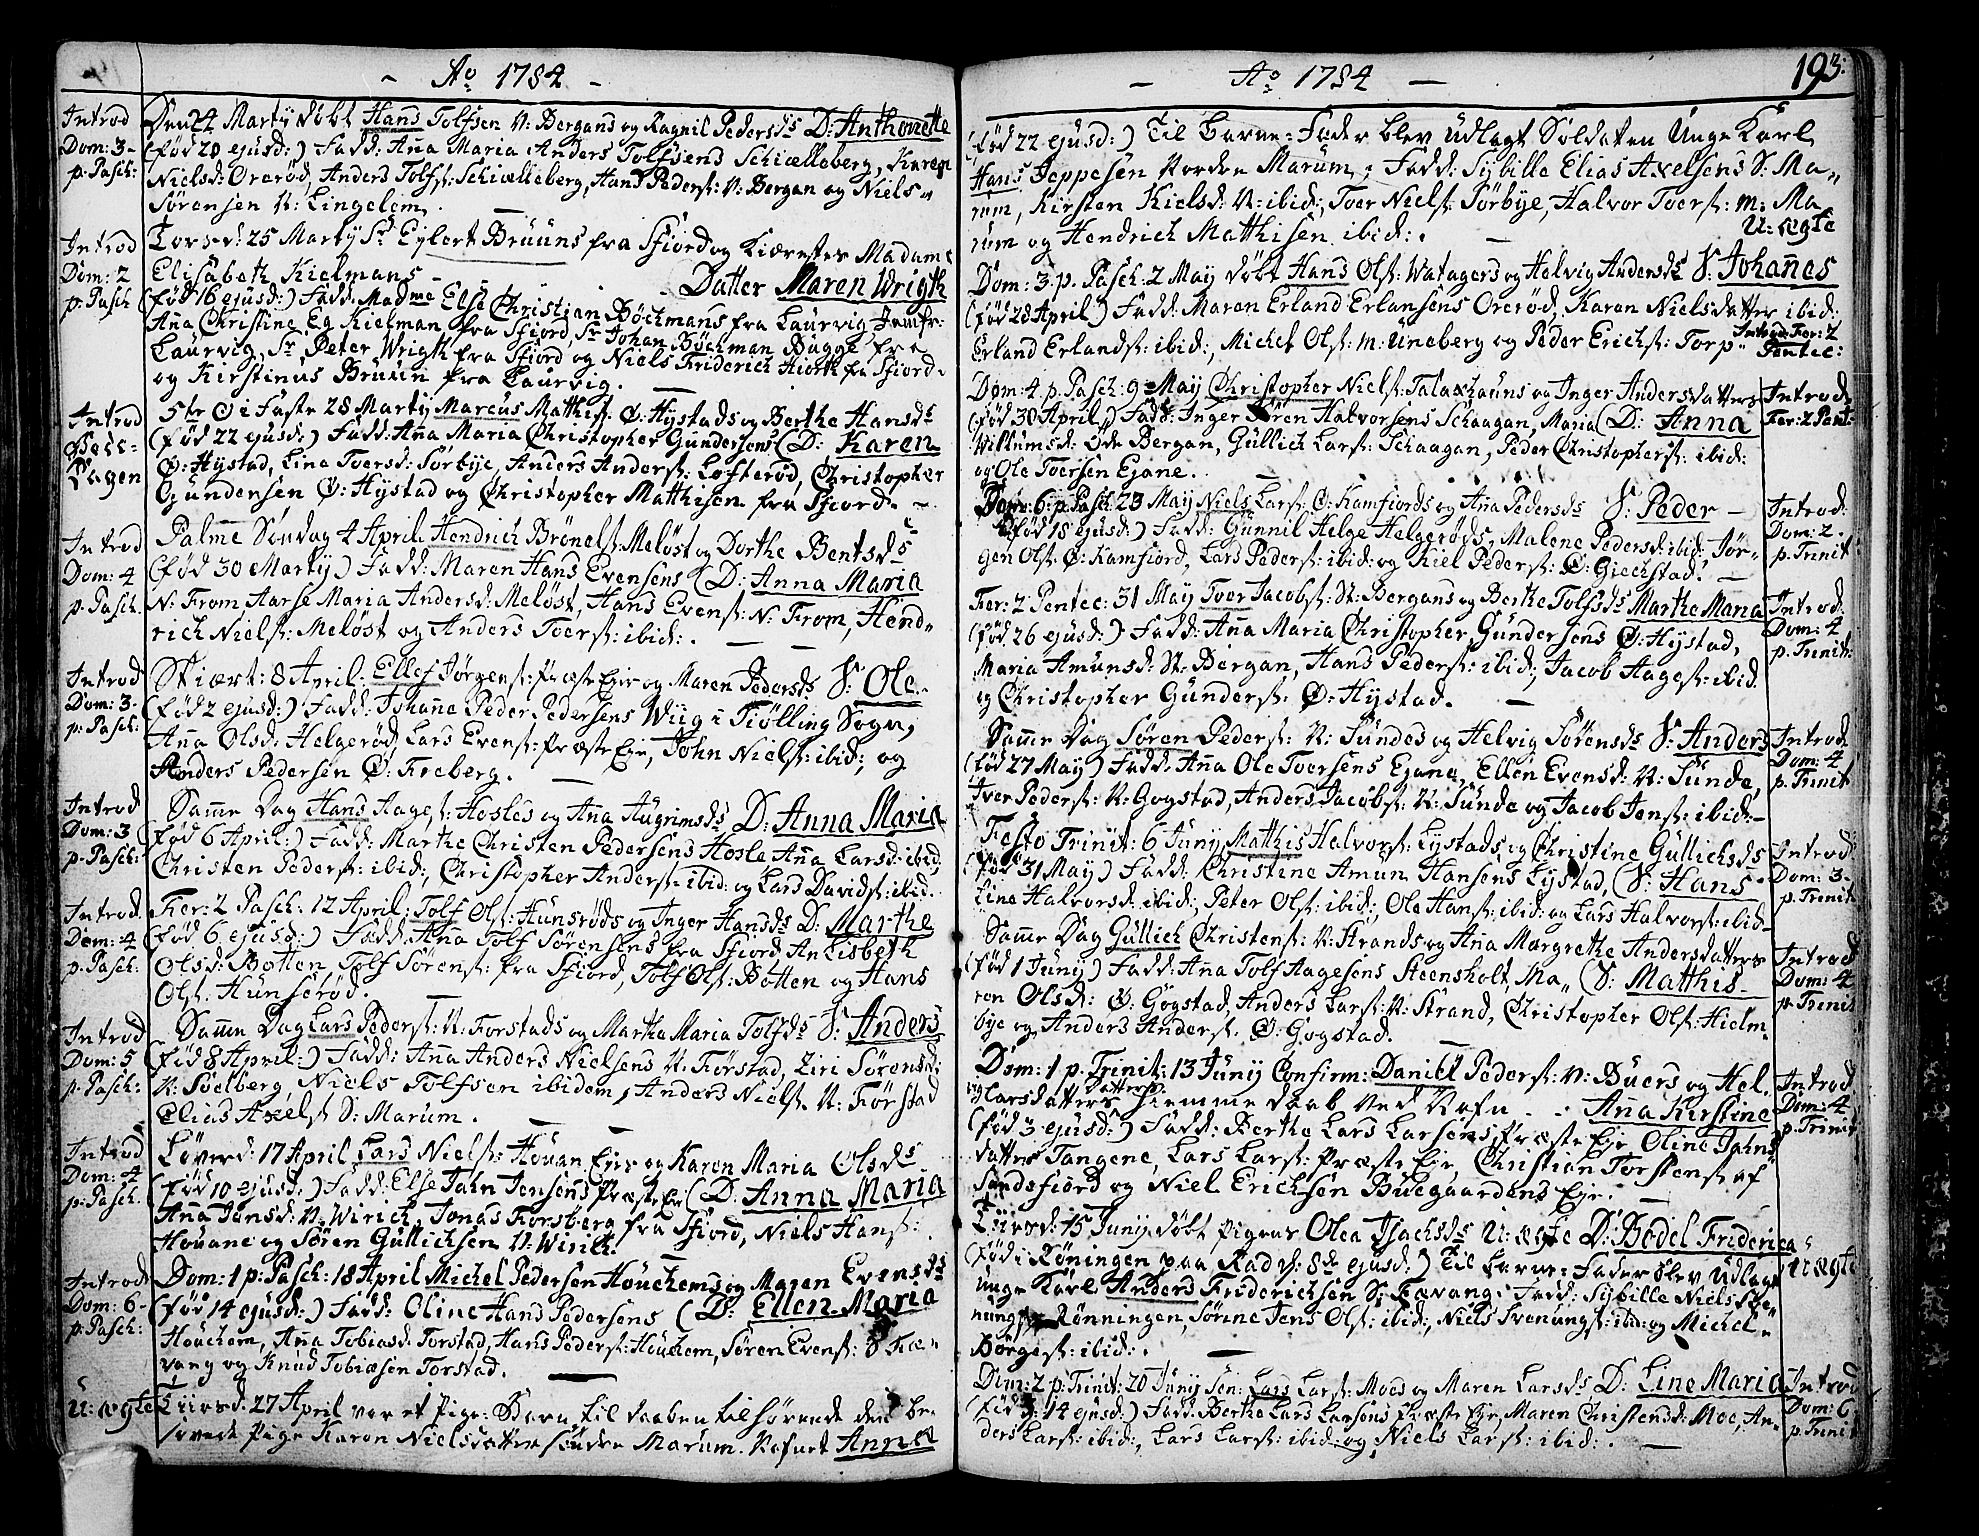 - Ao 1784 -
Introd
Dom: 3-
p. Pasch:
Den 24 Marty døbt Hans Tolfsen N: Bergans og Ragnil Pedersds D: Anthonette
(født 20 ejusd:) Fadd: Aña Maria Anders Tolfsens Schiælleberg, Karen
Nielsd: Orerød, Anders Tolfs: Schiælleberg, Hans Peders: N: Bergan og Niels
Sørensen N: Lingelem.
Introd
Dom: 2
p. Pasch
Torsd: 25 Marty Sr Eylert Bruuns fra Sfiord og Kiæreste Madame
Elisabeth Kielmans - Datter Maren Wrigth
(fød 16 ejusd:) Fadd: Madme Else Christian Bøckmans fra Laurvig Jomfr:
Aña Christine Eg Kielman fra Sfiord, Sr Johan Bøckman Bugge fra
Laurvig, Sr Peter Wrigth fra Sfiord og Niels Friderich Hiorth fra Sfiord
og Kirstinus Bruun fra Laurvig.
Introd
Bece-
Dagen
5te S i Faste 28 Marty Marcus Mathis: Ø: Hystads og Berthe Hansds
(fød 22 ejusd:) Fadd: Aña Maria Christopher Gundersens (D: Karen
Ø: Hystad, Lina Tversd: Sørbye, Anders Anders: Løfterød, Christopher
Gundersen Ø: Hystad og Christopher Matthisen fra Sfiord. -
Introd
Dom: 4
p. Pasch.
Palme Søndag 4 April Hendrich Brönels: Meløst og Dorthe Bentsds
(fød 30 Marty) Fadd: Maren Hans Evensens (D: Anna Maria
N: From, Aarse Maria Andersd: Meløst, Hans Evens: N: From, Hend-
rich Niels: Meløst og Anders Tvers: ibid:.
Introd
Dom: 3-
p. Pasch:
Skiært: 8 April. Ellef Jørgens: Præste Eje og Maren Pedersds S: Ole.
(fød 2 ejusd:) Fadd: Johañe Peder Pedersens Wiig i Tiølling Sogn,
Aña Olsd: Helgerød, Lars Evens: Præste Eje, John Niels: ibid:, og
Anders Pedersen Ø: Freberg.
Introd
Dom: 3
p. Pasch:
Sam̃e Dag Hans Aages: Hosles og Aña Augrimsds D: Anna Maria
(fød 6 April:) Fadd: Marthe Christen Pedersens Hosle Aña Larsd: ibid;
Christen Peders: ibid:, Christopher Anders: ibid: og Lars Davids: ibid.
Introd
Dom: 4
p. Pasch:
Fer: 2 Pasch: 12 April: Tolf Ols: Hunsrøds og Inger Hansds D: Marthe
(fød 6 ejusd:) Fadd: Aña Tolf Sørensens fra Sfiord, An Lisbeth
Olsd: Botten, Tolf Sørens: fra Sfiord, Tolf Ols: Botten og Hans
Ols: Hunserød.
Introd
Dom: 5
p. Pasch:
Sam̃e Dag Lars Peders: N: Forstads og Marthe Maria Tolfds S: Anders
(fød 8 April:) Fadd: Aña Anders Nielsens N: Førstad, Ziri Sørensd:
N: Soelberg Niels Tolfsen ibidem, Anders Niels: N: Førstad
Elias Axels: S: Marum.
Introd
Dom: 4
p. Pasch.
Løverd: 17 April Lars Niels: Houan Eje og Karen Maria Olsds
(fød 10 ejusd:) Fadd: Else Jahn Jensens Præste Eje (D: Anna Maria
Aña Jensd: N: Wirich, Jonas Forsberg fra Sfiord, Niels Hans:
Houane og Søren Gullichsen N: Wirich.
Introd
Dom: 6-
p. Pasch:
Dom: 1 p: Pasch: 18 April Michel Pedersen Houchems og Maren Evensds
(fød 14 ejusd:) Fadd: Oline Hans Pedersens (D: Ellen Maria
Houchem, Aña Tobiasd: Torstad, Hans Peders: Houchem, Søren Evens: S Fæ-
vang og Knud Tobiasen Torstad.
U: ægte
Tiirsd: 27 April var et Pige-Barn til Daaben tilhørende den be-
sovede Pige Karen Nielsdatter søndre Marum. Nafnet Anna

- Ao 1784 -
193:
(fød 22 ejusd:) Til Barne-Fader blev Udlagt Soldaten Unge Karl
Hans Jeppesen Norden Marum, Fadd: Sybille Elias Axelsens S: Ma-
rum, Kirsten Kielsd: N: ibid:, Tver Niels: Sørbye, Halvor Tvers: m: Ma
rum og Hendrich Matthisen ibid:.
U: ægte
Dom: 3. p. Pasch: 2 May døbt Hans Ols: Watagers og Helvig Andersds S: Johañes
(fød 28 April) Fadd: Maren Erland Erlansens Orerød, Karen Nielsdatter ibid:
Erland Erlands: ibid:, Michel Ols: m: Uneberg og Peder Erichs: Torp.
Introd: Fer: 2
Pentec:
Dom: 4 p. Pasch: 9 May Christopher Niels: Talaxhauns og Inger Andersdatters
(fød 30 April) Fadd: Inger Søren Halvorsens Schaagan, Maria (D: Anna
Willumsd: Øde Bergan, Gullich Lars: Schaagan, Peder Christophers: ibid:
og Ole Tversen Ejane.
Introd
Fer: 2 Pent:
Dom: 6: p. Pasch: 23 May Niels Lars: Ø: Kamfiords og Aña Pedersds S: Peder -
(fød 18 ejusd:) Fadd: Gunnil Helge Helgerøds, Malene Pedersd: ibid: Jør-
gen Ols: Ø: Kamfiord, Lars Peders: ibid: og Kiel Peders: Ø: Giechstad.
Introd:
Dom: 2.
p. Trinit
Fer: 2 Pentec: 31 May Tver Jacobs: St: Bergans og Berthe Tolfsds Marthe Maria
(fød 26 ejusd:) Fadd: Aña Maria Christopher Gundersens Ø: Hystad,
Maria Amunsd: St: Bergan, Hans Peders: ibid:, Jacob Aages: ibid
og Christopher Gunders: Ø: Hystad.
Introd.
Dom: 4
p. Trinit:
Sam̃e Dag Søren Peders: N: Sundes og Helvig Sørensds S: Anders
(fød 27 May) Fadd: Aña Ole Tversens Ejane, Ellen Evensd: N: Sunde,
Iver Peders: N: Gogstad, Anders Jacobs: N: Sunde og Jacob Jens: ibid:
Introd
Dom: 4
p. Trinit
Festo Trinit: 6 Juny Matthis Halvors: Lystads og Christine Gullichsds
(fød 31 May) Fadd: Christine Amun Hansens Lystad, (S: Hans -
Line Halvorsd: ibid:, Peter Ols: ibid:, Ole Hans: ibid: og Lars Halvors: ibid
Introd:
Dom: 3-
p. Trinit
Sam̃e Dag Gullich Christens: N: Strands og Aña Margrethe Andersdatters
(fød 1 Juny) Fadd: Aña Tolf Aagesens Steensholt, Ma- (S: Matthis -
ren Olsd: Ø: Gogstad, Anders Lars: N: Strand, Christopher Ols: Hielm-
bye og Anders Anders: Ø: Gogstad.
Introd
Dom: 4
p. Trinit
Dom: 1 p. Trinit: 13 Juny Confirm: Daniel Peders: N: Buers og Hel.
vig Larsdatters Datters hiemme daab ved Nafn - Aña Kirstine
(fød 3 ejusd:) Fadd: Berthe Lars Larsens Præste Eje Oline Jahns
datter Tangene, Lars Lars: Præste Eje, Christian Torstens: af
Sandefiord og Niel Erichsen Buegaardens Eje.
Introd
Dom: 4
p. Trinit
Tiirsd: 15 Juny døbt Pigens Olea Isachsds U: ægte D: Bodel Friderica
(Fød i Røningen paa Rads: 8de ejusd:) Til Barne-Fader blev Udlagt
unge Karl Anders Friderichsen S: Fævang. Fadd: Sybille Niels Sve-
nungs: Rønningen, Sørine Jens Ols: ibid:, Niels Svenungs: ibid: og Michel
Børges: ibid:.
U ægte
Dom: 2 p: Trinit: 20 Juny Sen: Lars Lars: Moes og Maren Larsds D: Line Maria
(fød 14 ejusd:) Fadd: Berthe Lars Larsens Præste Eje, Maren Christensd: Moe, An-
ders Lars: ibid:, Lars Lars: ibid: og Niels Lars: ibid:.
Introd
Dom: 6
p. Trinit